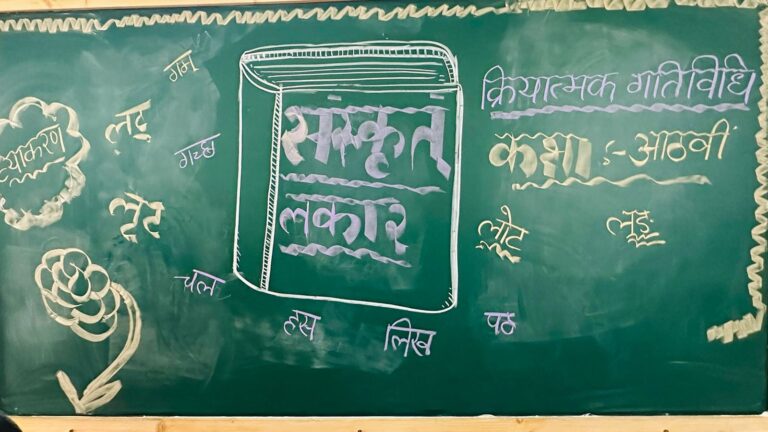 गम्
क्रियात्मक गतिविधि
व्याकरण
लृट्
संस्कृतं
कक्षा :- आठवीं
गच्छ
लृट
लकार
लोट
लङ्
चल
हस
लिख
पठ